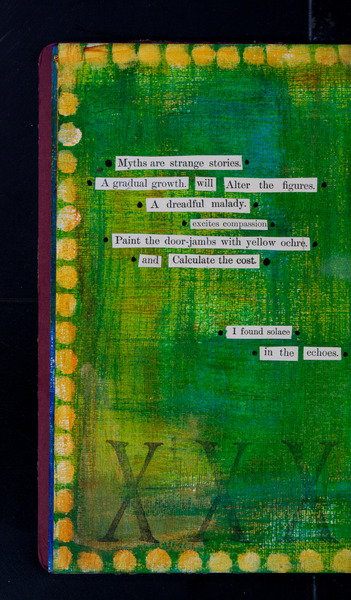 Myths are strange stories.
A gradual growth. will Alter the figures.
A dreadful malady.
excites compassion
Paint the door-jambs with yellow ochre.
and Calculate the cost.
I found solace
in the echoes.
XXX